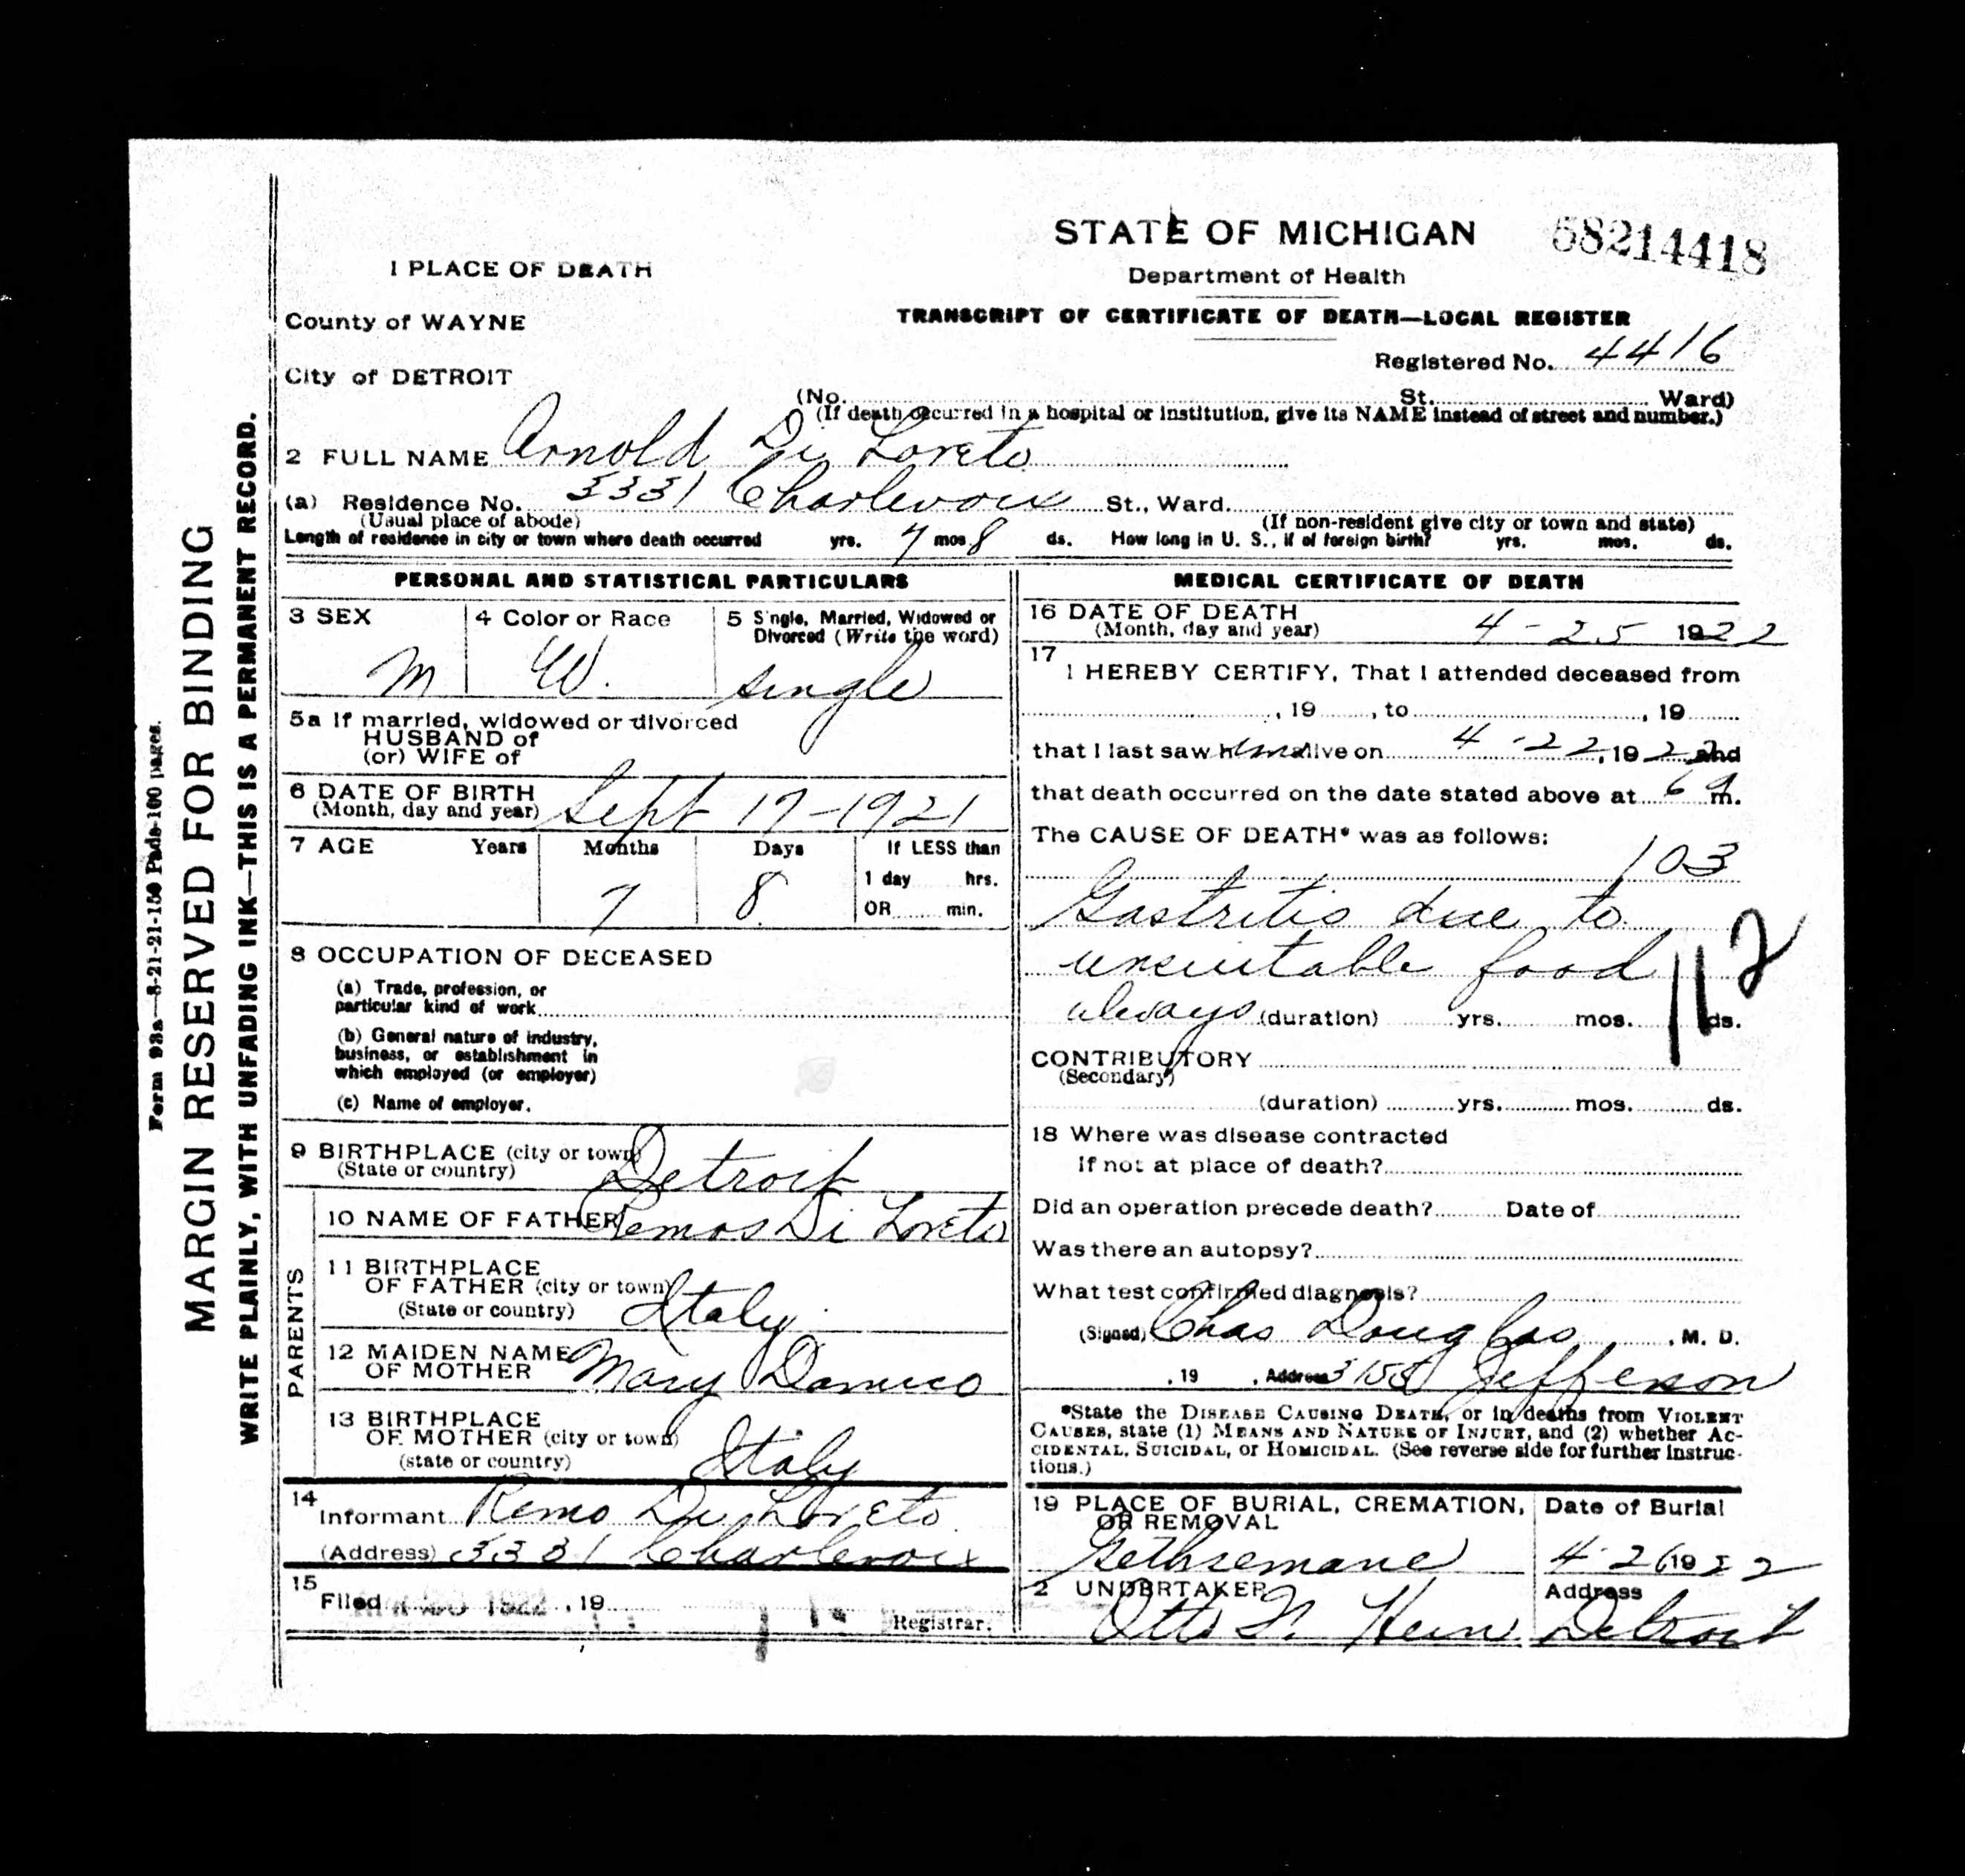 STATE OF MICHIGAN
58214418
Department of Health
1 PLACE OF DEATH
TRANSCRIPT OF CERTIFICATE OF DEATH—LOCAL REGISTER
County of WAYNE
Registered No. 4416
City of DETROIT
(No. St. Ward)
(If death occurred in a hospital or institution, give its NAME instead of street and number.)
2 FULL NAME Arnold Di Loreto
(a) Residence No. 3331 Charlevoix St., Ward.
(Usual place of abode) (If non-resident give city or town and state)
Length of residence in city or town where death occurred yrs. 7 mos 8 ds. How long in U. S., if of foreign birth? yrs. mos. ds.
PERSONAL AND STATISTICAL PARTICULARS
3 SEX
M
4 Color or Race
W.
5 Single, Married, Widowed or
Divorced (Write the word)
single
5a If married, widowed or divorced
HUSBAND of
(or) WIFE of
6 DATE OF BIRTH
(Month, day and year) Sept 17-1921
7 AGE Years Months Days If LESS than
1 day hrs.
7 8
OR min.
8 OCCUPATION OF DECEASED
(a) Trade, profession, or
particular kind of work
(b) General nature of industry,
business, or establishment in
which employed (or employer)
(c) Name of employer.
9 BIRTHPLACE (city or town)
(State or country) Detroit
PARENTS
10 NAME OF FATHER Remos Di Loreto
11 BIRTHPLACE
OF FATHER (city or town)
(State or country) Italy
12 MAIDEN NAME
OF MOTHER Mary Damico
13 BIRTHPLACE
OF MOTHER (city or town)
(state or country) Italy
14
Informant Remo Di Loreto
(Address) 3331 Charlevoix
15
Filed 1922, 19
Registrar.
MEDICAL CERTIFICATE OF DEATH
16 DATE OF DEATH
(Month, day and year) 4-25 1922
17
I HEREBY CERTIFY, That I attended deceased from
, 19 , to , 19
that I last saw him alive on 4-22, 1922 and
that death occurred on the date stated above at 6 a m.
The CAUSE OF DEATH* was as follows:
103
Gastritis due to
unsuitable food
112
always (duration) yrs. mos. ds.
CONTRIBUTORY
(Secondary)
(duration) yrs. mos. ds.
18 Where was disease contracted
If not at place of death?
Did an operation precede death? Date of
Was there an autopsy?
What test confirmed diagnosis?
(Signed) Chas Douglas, M. D.
, 19 , Address 3155 Jefferson
*State the DISEASE CAUSING DEATH, or in deaths from VIOLENT
CAUSES, state (1) MEANS AND NATURE OF INJURY, and (2) whether AC-
CIDENTAL, SUICIDAL, or HOMICIDAL. (See reverse side for further instruc-
tions.)
19 PLACE OF BURIAL, CREMATION,
OR REMOVAL
Gethsemane
Date of Burial
4-26 1922
2 UNDERTAKER
Otto Hein
Address
Detroit
Form 93a—8-21-21-150 Pads-100 pages.
MARGIN RESERVED FOR BINDING
WRITE PLAINLY, WITH UNFADING INK—THIS IS A PERMANENT RECORD.